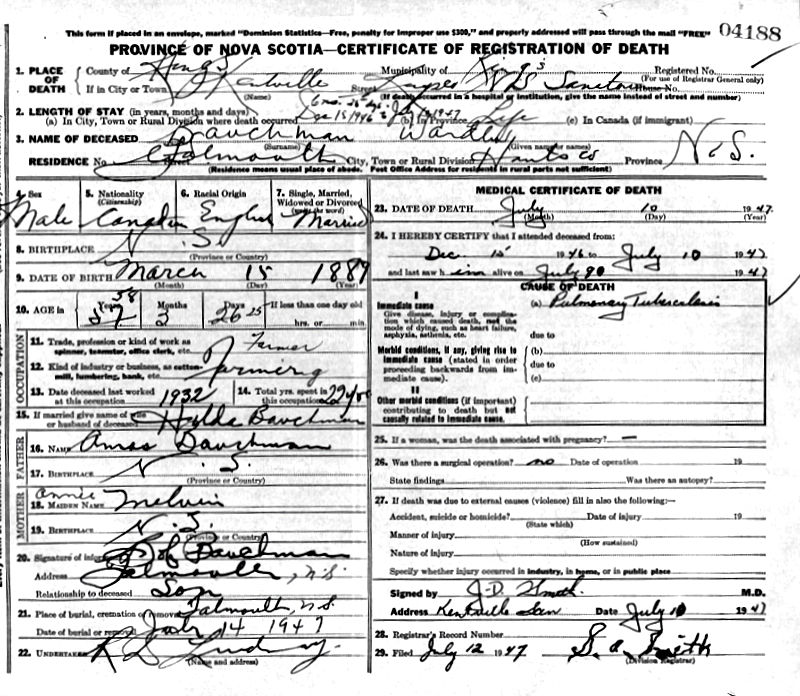 This form if placed in an envelope, marked "Dominion Statistics—Free, penalty for improper use $300," and properly addressed will pass through the mail "FREE" 04188
PROVINCE OF NOVA SCOTIA—CERTIFICATE OF REGISTRATION OF DEATH
1. PLACE OF DEATH { County of Kings Municipality of Kings Registered No.
(For use of Registrar General only)
If in City or Town Kentville Street N.S. House No.
(Name) (If death occurred in a hospital or institution, give the name instead of street and number)
2. LENGTH OF STAY (in years, months and days)
(a) In City, Town or Rural Division where death occurred Dec 15 1946 (b) In Province Life (c) In Canada (if immigrant)
3. NAME OF DECEASED Bauchman
(Surname) (Given name or names)
RESIDENCE No. Falmouth City, Town or Rural Division Hants Co Province N.S.
(Residence means usual place of abode. Post Office Address for residents in rural parts not sufficient)
4. Sex Male
5. Nationality (Citizenship) Canadian
6. Racial Origin English
7. Single, Married, Widowed or Divorced (write the word) Married
8. BIRTHPLACE N.S.
(Province or Country)
9. DATE OF BIRTH March 15 1889
(Month) (Day) (Year)
10. AGE in Years 58 57 Months 3 Days 26 25 If less than one day old
hrs. or min
OCCUPATION
11. Trade, profession or kind of work as spinner, teamster, office clerk, etc. Farmer
12. Kind of industry or business, as cotton-mill, lumbering, bank, etc. Farming
13. Date deceased last worked at this occupation 1932 14. Total yrs. spent in this occupation 22 yrs
15. If married give name of wife or husband of deceased Hylda Bauchman
FATHER
16. NAME Amos Bauchman
17. BIRTHPLACE N.S.
(Province or Country)
MOTHER
18. MAIDEN NAME Annie Melvin
19. BIRTHPLACE N.S.
(Province or Country)
20. Signature of informant Bauchman
Address Falmouth, N.S.
Relationship to deceased Son
21. Place of burial, cremation or removal Falmouth, N.S.
Date of burial or removal July 14 1947
22. UNDERTAKER Lindsay
(Name and address)
MEDICAL CERTIFICATE OF DEATH
23. DATE OF DEATH July 10 1947
(Month) (Day) (Year)
24. I HEREBY CERTIFY that I attended deceased from:
Dec 15 1946 to July 10 1947
and last saw him alive on July 1947
CAUSE OF DEATH
I
Immediate cause
Give disease, injury or complication which caused death, not the mode of dying, such as heart failure, asphyxia, asthenia, etc.
(a) Pulmonary Tuberculosis
due to
Morbid conditions, if any, giving rise to immediate cause (stated in order proceeding backwards from immediate cause).
(b)
due to
(c)
II
Other morbid conditions (if important) contributing to death but not causally related to immediate cause.
25. If a woman, was the death associated with pregnancy? —
26. Was there a surgical operation? no Date of operation 19
State findings Was there an autopsy?
27. If death was due to external causes (violence) fill in also the following:—
Accident, suicide or homicide? Date of injury 19
(State which)
Manner of injury
(How sustained)
Nature of injury
Specify whether injury occurred in industry, in home, or in public place
Signed by J. D. Smith M.D.
Address Kentville San Date July 10 1947
28. Registrar's Record Number
29. Filed July 12 1947 S. A. Smith
(Division Registrar)